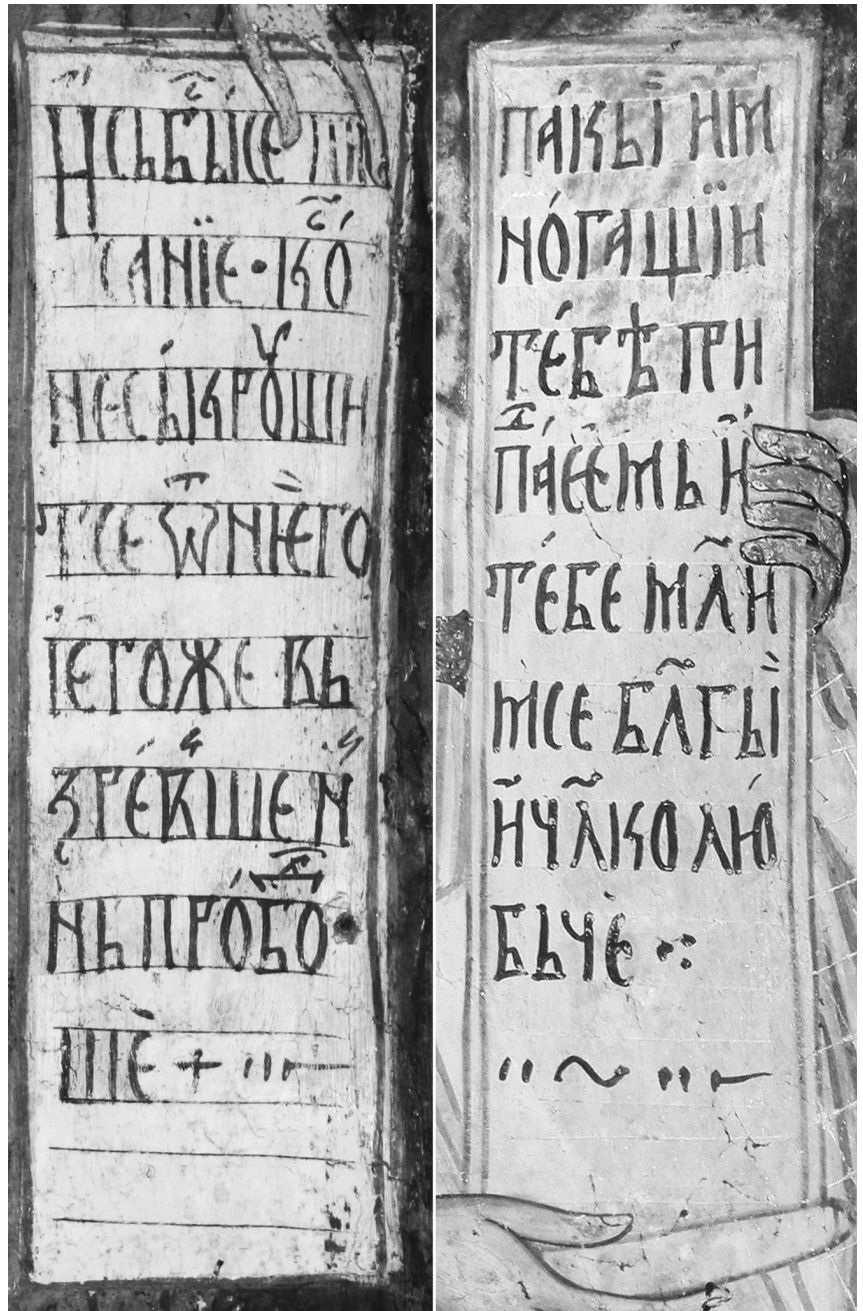 Исьбы́ⷭ҇се пи
саніе · ко́ⷭ҇
несы́крꙋши
тсе ѿніѥго
ѥгоже вь
зре́вшен
нь про́боⷣ
шѐ +
па́кы им
но́гащїи
те́бѣ при
па́ⷣе́ємь и
те́бе мл҃и
мсе бл҃гы
и чл҃колю́
бьчѐ ⁘